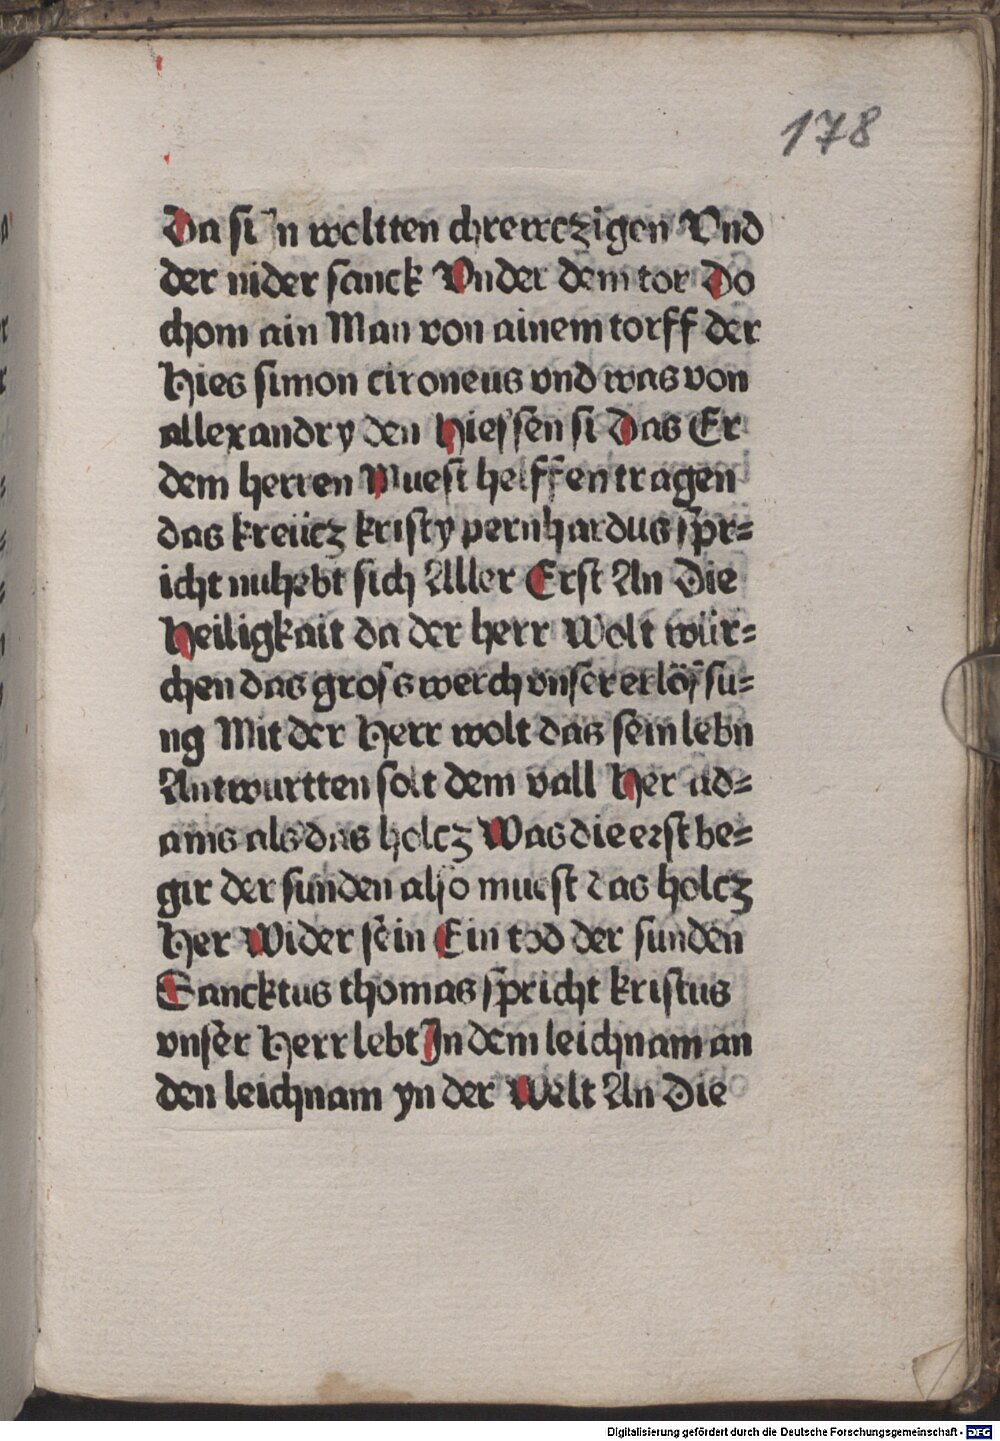 178
Da si In woltten chrewczigen Vnd
der nider sanck Vnder dem tor Do
chom ain Man von ainem torff der
Hies simon cironeus vnd was von
allexandry den Hiessen si Das Er
dem herren Muest helffen tragen
das kreücz kristy pernhardus spr=
icht nu hebt sich Aller Erst An Die
Heiligkait da der herr Wolt wür=
chen das gross werch vnser erlössu=
ng Mit der Herr wolt das sein lebn
Antwurtten solt dem vall Her ad=
ams als das holcz Was die erst be=
gir der sunden also muest das holcz
Her Wider sein Ein tod der sunden
Sancktus thomas spricht kristus
vnser Herr lebt In dem leichnam an
den leichnam yn der Welt An Die
Digitalisierung gefördert durch die Deutsche Forschungsgemeinschaft - DFG